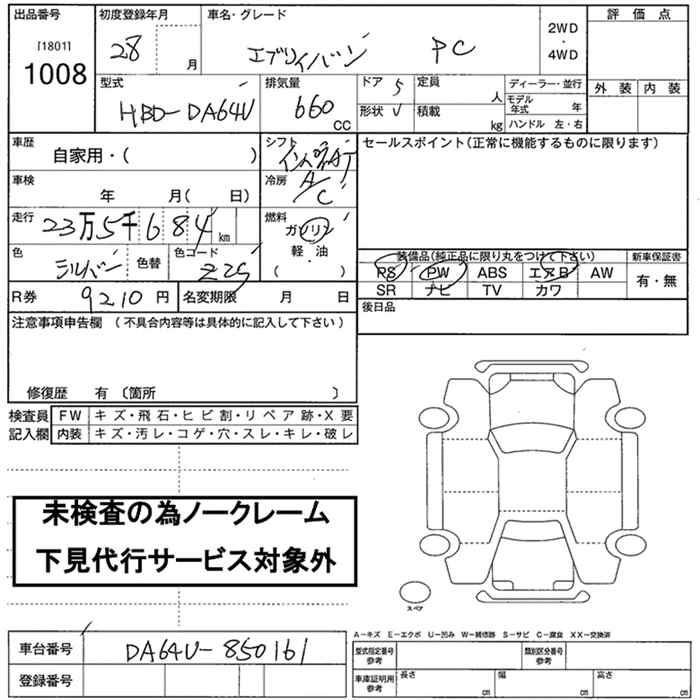 出品番号 初度登録年月 車名・グレード 評価点
[1801] 1008 28 月 エブリイバン PC 2WD・4WD
型式 排気量 ドア 5 定員 人 ディーラー・並行 外装 内装
HBD-DA64V 660 CC 形状 V 積載 kg モデル年式 年
ハンドル 左・右
車歴 シフト セールスポイント(正常に機能するものに限ります)
自家用・( ) インパネAT
車検 冷房
年 月( 日) A/C
走行 燃料
23万5千684km ガソリン
軽・油
( )
色 色替 色コード 装備品(純正品に限り丸をつけて下さい) 新車保証書
シルバー Z2S PS PW ABS エアB AW 有・無
SR ナビ TV カワ
R券 9210円 名変期限 月 日 後日品
注意事項申告欄 (不具合内容等は具体的に記入して下さい)
修復歴 有 〔箇所 〕
検査員 FW キズ・飛石・ヒビ割・リペア跡・X要
記入欄 内装 キズ・汚レ・コゲ・穴・スレ・キレ・破レ
未検査の為ノークレーム
下見代行サービス対象外
スペア
A-キズ E-エクボ U-凹み W-補修跡 S-サビ C-腐食 XX-交換済
車台番号 DA64V-850161 型式指定番号 参考 類別区分番号 参考
登録番号 車庫証明用 参考 長さ cm 幅 cm 高さ cm